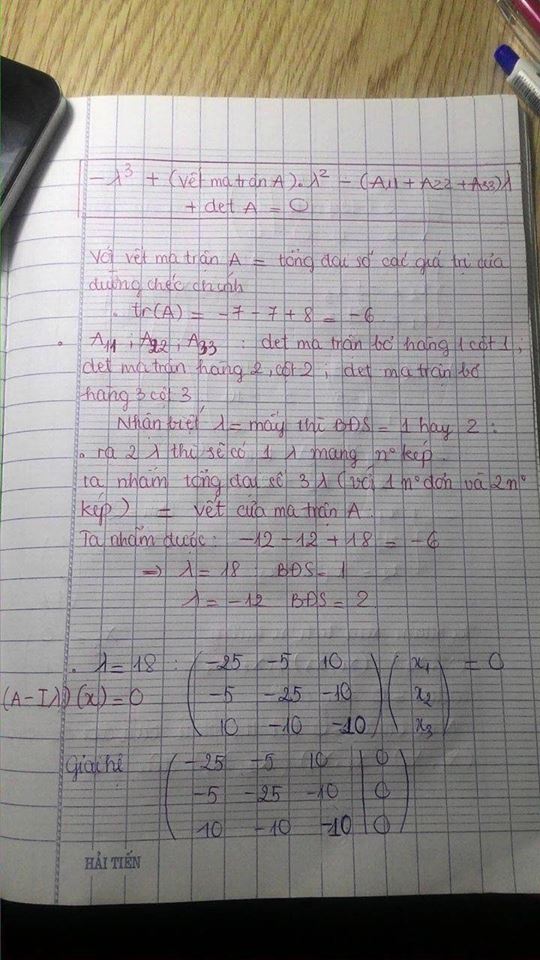 -λ³ + (Vết ma trận A).λ² - (A11 + A22 + A33)λ
+ det A = 0
Với vết ma trận A = tổng đại số các giá trị của
đường chéc chính
. tr(A) = -7 -7 + 8 = -6
. A11 ; A22 ; A33 : det ma trận bỏ hàng 1 cột 1 ;
det ma trận hàng 2, cột 2 ; det ma trận bỏ
hàng 3 cột 3
Nhận biết λ = mấy thì BĐS = 1 hay 2 :
. ra 2 λ thì sẽ có 1 λ mang n° kép.
ta nhẩm tổng đại số 3 λ (với 1 n° đơn và 2 n°
kép) = vết của ma trận A.
Ta nhẩm được : -12 -12 + 18 = -6
⇒ λ = 18 BĐS = 1
λ = -12 BĐS = 2
. λ = 18 : ( -25 -5 10 ) ( x1 ) = 0
(A - Iλ)(x) = 0 -5 -25 -10 x2
10 -10 -10 x3
Giải hệ ( -25 -5 10 | 0 )
-5 -25 -10 | 0
10 -10 -10 | 0
HẢI TIẾN